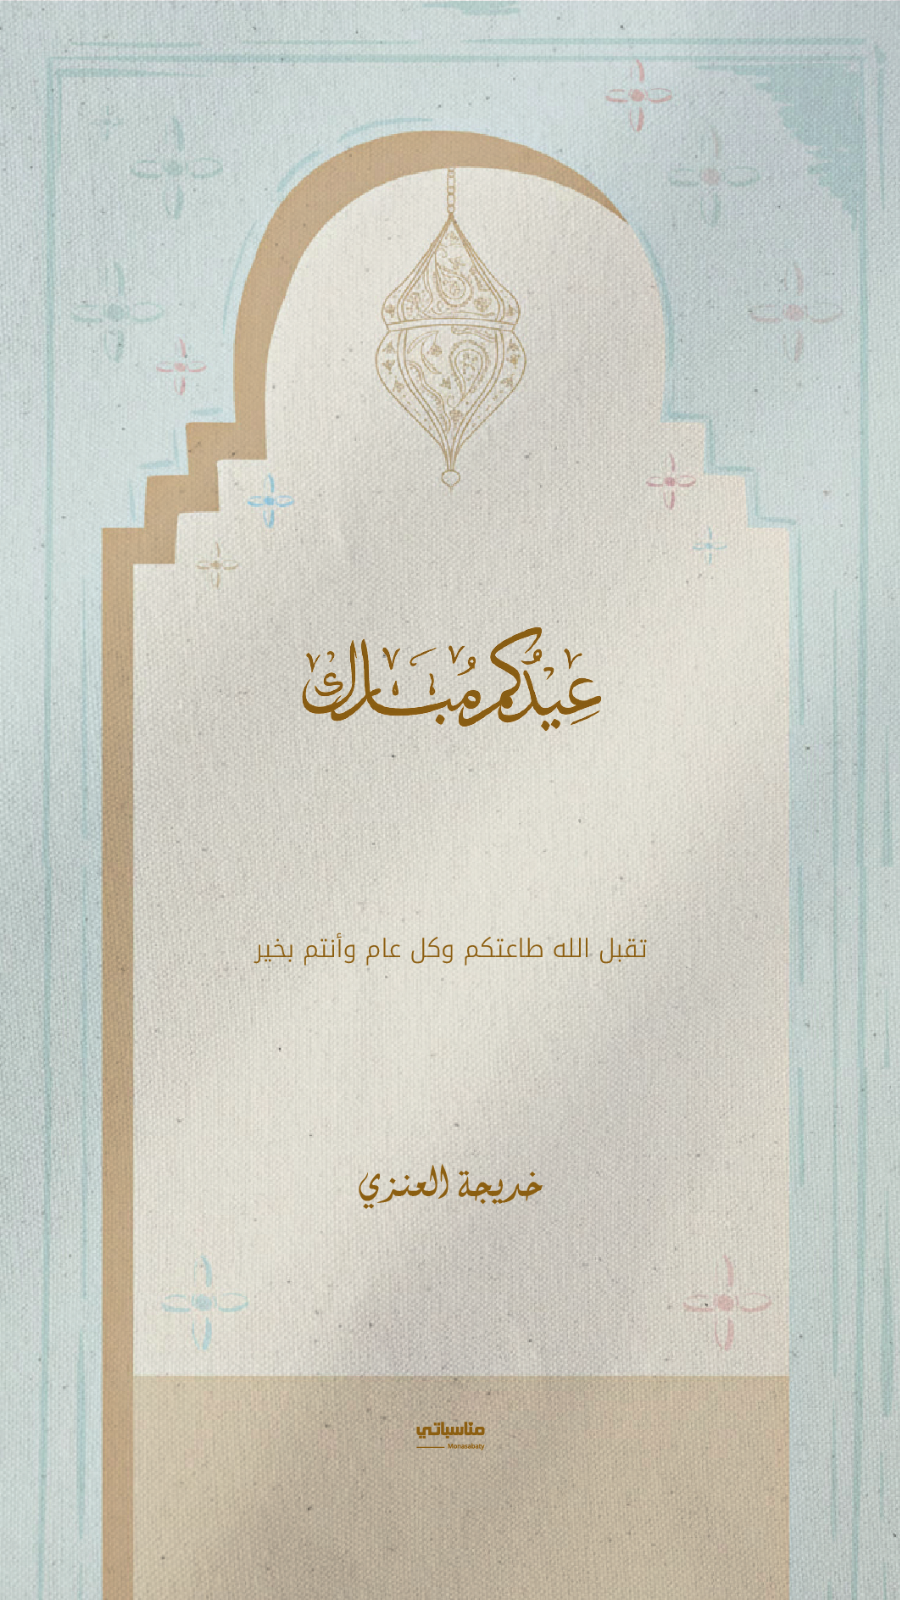 عِيدُكُم مُبَارك
تقبل الله طاعتكم وكل عام وأنتم بخير
خديجة العنزي
مناسباتي
Monasabaty